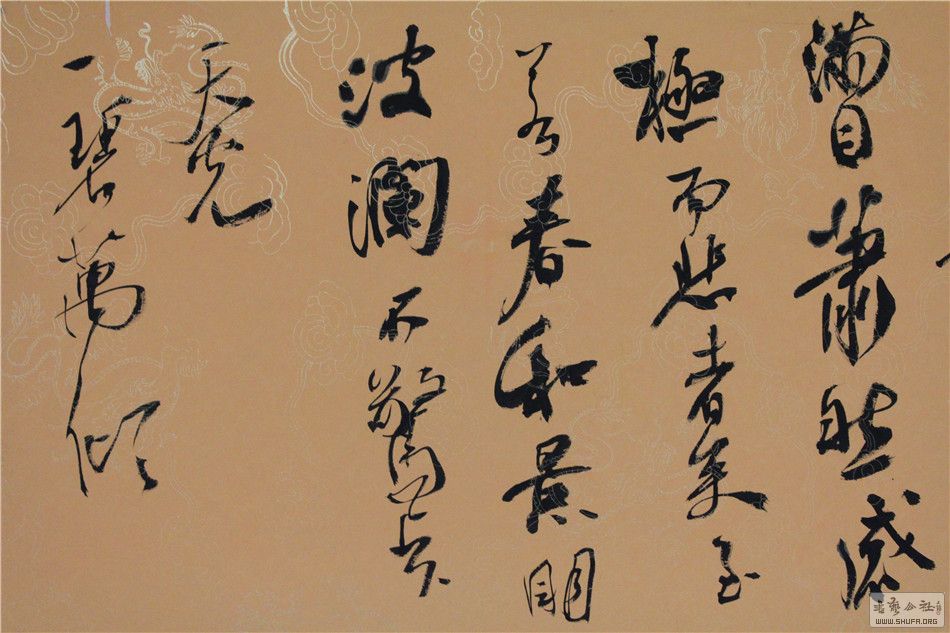 滿目蕭然感
極而悲者矣至
若春和景明
波瀾不驚上下
天光
一碧萬頃
書藝公社
WWW.SHUFA.ORG